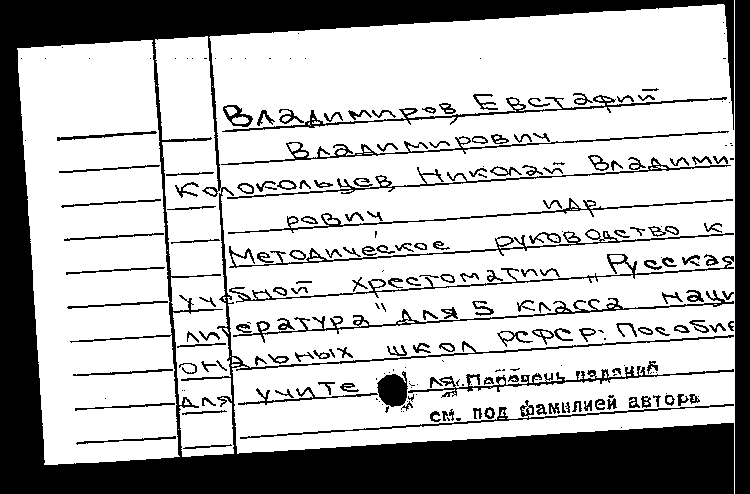 Владимиров, Евстафий
Владимирович
Колокольцев, Николай Владими-
рович и др.
Методическое руководство к
учебной хрестоматии „Русская
литература" для 5 класса наци
ональных школ РСФСР: Пособие
для учите ля. Перечень изданий
см. под фамилией автора